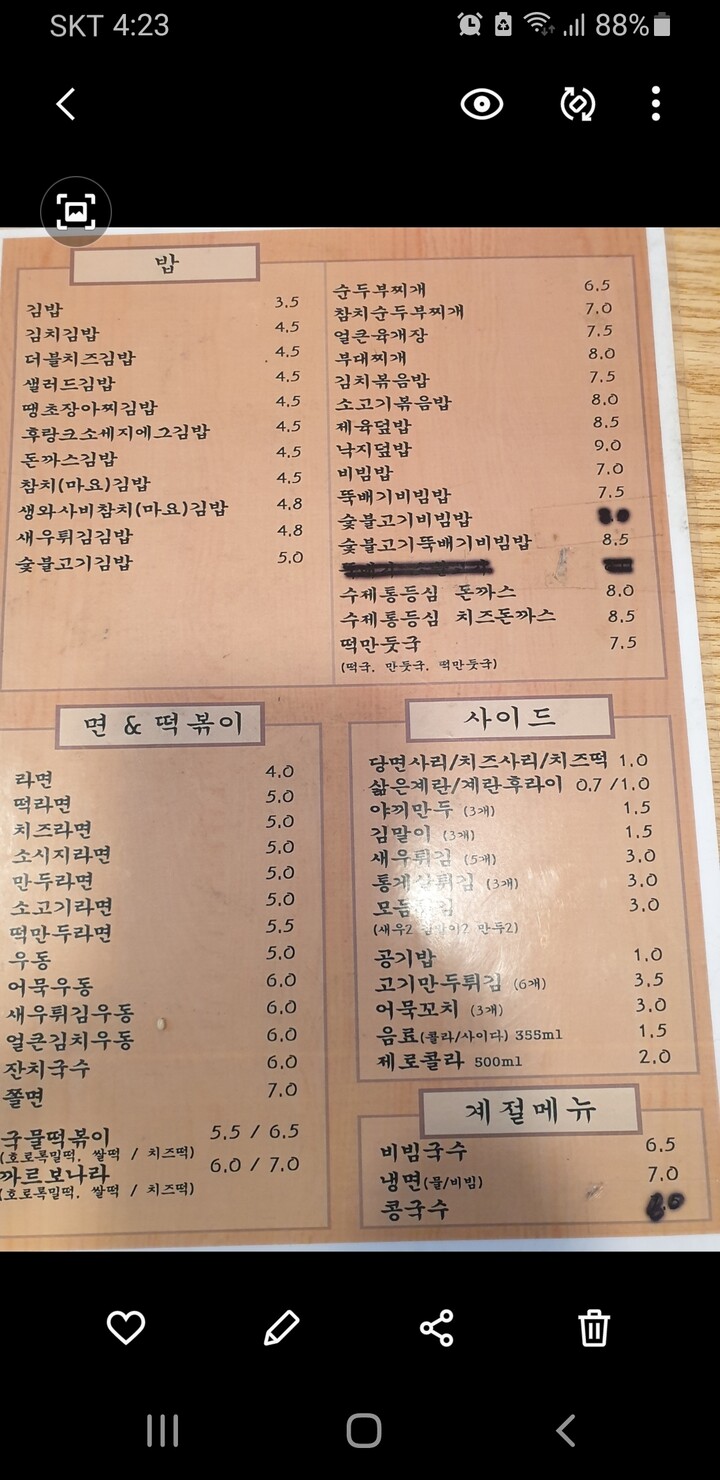 SKT 4:23
88%
밥
김밥 3.5
김치김밥 4.5
더블치즈김밥 4.5
샐러드김밥 4.5
땡초장아찌김밥 4.5
후랑크소세지에그김밥 4.5
돈까스김밥 4.5
참치(마요)김밥 4.5
생와사비참치(마요)김밥 4.8
새우튀김김밥 4.8
숯불고기김밥 5.0
순두부찌개 6.5
참치순두부찌개 7.0
얼큰육개장 7.5
부대찌개 8.0
김치볶음밥 7.5
소고기볶음밥 8.0
제육덮밥 8.5
낙지덮밥 9.0
비빔밥 7.0
뚝배기비빔밥 7.5
숯불고기비빔밥 8.0
숯불고기뚝배기비빔밥 8.5
수제통등심 돈까스 8.0
수제통등심 치즈돈까스 8.5
떡만둣국 7.5
(떡국, 만둣국, 떡만둣국)
면 & 떡볶이
라면 4.0
떡라면 5.0
치즈라면 5.0
소시지라면 5.0
만두라면 5.0
소고기라면 5.0
떡만두라면 5.5
우동 5.0
어묵우동 6.0
새우튀김우동 6.0
얼큰김치우동 6.0
잔치국수 6.0
쫄면 7.0
국물떡볶이 5.5 / 6.5
(호로록밀떡, 쌀떡 / 치즈떡)
까르보나라 6.0 / 7.0
(호로록밀떡, 쌀떡 / 치즈떡)
사이드
당면사리/치즈사리/치즈떡 1.0
삶은계란/계란후라이 0.7 /1.0
야끼만두 (3개) 1.5
김말이 (3개) 1.5
새우튀김 (5개) 3.0
통게살튀김 (3개) 3.0
모듬튀김 3.0
(새우2 김말이2 만두2)
공기밥 1.0
고기만두튀김 (6개) 3.5
어묵꼬치 (3개) 3.0
음료(콜라/사이다) 355ml 1.5
제로콜라 500ml 2.0
계절메뉴
비빔국수 6.5
냉면(물/비빔) 7.0
콩국수 8.0